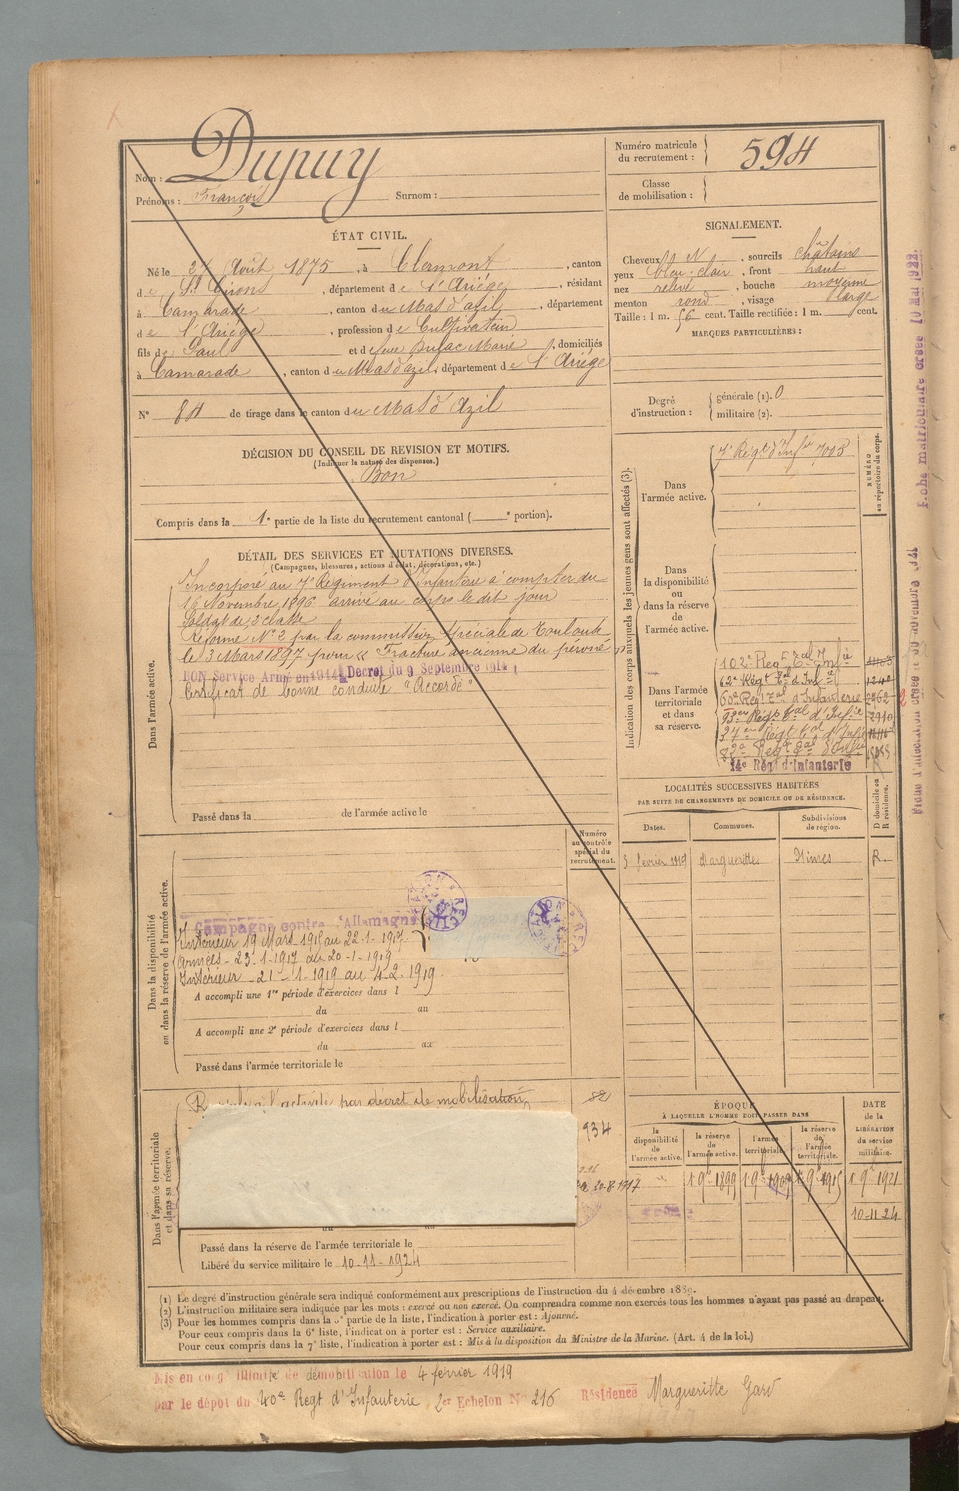 Nom : Dupuy
Prénoms : François Surnom :
Numéro matricule
du recrutement : 594
Classe
de mobilisation :
ÉTAT CIVIL.
Né le 27 Août 1875, à Clermont, canton
de St Girons, département de l'Ariège, résidant
à Camarade, canton du Mas d'azil, département
de l'Ariège, profession de Cultivateur
fils de Paul et de feue Bufac Marie, domiciliés
à Camarade, canton du Mas d'azil, département de l'Ariège
N° 84 de tirage dans le canton du Mas d'Azil
SIGNALEMENT.
Cheveux N, sourcils châtains
yeux bleu-clair, front haut
nez relevé, bouche moyenne
menton rond, visage large
Taille : 1 m. 56 cent. Taille rectifiée : 1 m. cent.
MARQUES PARTICULIÈRES :
Degré
d'instruction :
générale (1). 0
militaire (2).
DÉCISION DU CONSEIL DE REVISION ET MOTIFS.
(Indiquer la nature des dispenses.)
Bon
Compris dans la 1e partie de la liste du recrutement cantonal ( e portion).
DÉTAIL DES SERVICES ET MUTATIONS DIVERSES.
(Campagnes, blessures, actions d'éclat, décorations, etc.)
Dans l'armée active.
Incorporé au 7e Régiment d'Infanterie à compter du
16 Novembre 1896 arrivé au corps le dit jour
Soldat de 2e classe
Réformé N° 2 par la commission spéciale de Toulouse
le 3 Mars 1897 pour « Fracture ancienne du péroné »
BON Service Armé en 1914 Décret du 9 Septembre 1914
Certificat de bonne conduite "Accordé"
Passé dans la de l'armée active le
Indication des corps auxquels les jeunes gens sont affectés (3).
NUMÉRO
au répertoire du corps.
Dans
l'armée active.
7e Régt d'Infie 7008
Dans
la disponibilité
ou
dans la réserve
de
l'armée active.
Dans l'armée
territoriale
et dans
sa réserve.
102e Régt Eal Infie
62e Régt Eal d'Infie
60e Régt Eal d'Infanterie
93e Régt Eal d'Infie
37e Régt Eal d'Infie
83e Régt Eal d'Infie
14e Régt d'Infanterie
LOCALITÉS SUCCESSIVES HABITÉES
PAR SUITE DE CHANGEMENTS DE DOMICILE OU DE RÉSIDENCE.
Dates. Communes. Subdivisions
de région. D domicile ou
R résidence.
5 février 1919 Marguerittes Nîmes R.
Numéro
au contrôle
spécial du
recrutement.
Dans la disponibilité
ou dans la réserve de l'armée active.
Campagne contre l'Allemagne
Intérieur 19 Mars 1915 au 22-1-1917
Armées - 23-1-1917 au 20-1-1919
Intérieur - 21-1-1919 au 4-2-1919
A accompli une 1re période d'exercices dans l
du au
A accompli une 2e période d'exercices dans l
du au
Passé dans l'armée territoriale le
Dans l'armée territoriale
et dans sa réserve.
Rappelé à l'activité par décret de mobilisation
82
934
20-8-1917
du au
Passé dans la réserve de l'armée territoriale le
Libéré du service militaire le 10-11-1924
ÉPOQUE
À LAQUELLE L'HOMME DOIT PASSER DANS
DATE
de la
LIBÉRATION
du service
militaire.
la
disponibilité
de
l'armée active.
la réserve
de
l'armée active.
l'armée
territoriale.
la réserve
de
l'armée
territoriale.
1 9e 1899 1 9e 1909 1 9e 1915 1 9e 1921
10-11-24
(1) Le degré d'instruction générale sera indiqué conformément aux prescriptions de l'instruction du 4 décembre 1889.
(2) L'instruction militaire sera indiquée par les mots : exercé ou non exercé. On comprendra comme non exercés tous les hommes n'ayant pas passé au drapeau.
(3) Pour les hommes compris dans la 5e partie de la liste, l'indication à porter est : Ajourné.
Pour ceux compris dans la 6e liste, l'indication à porter est : Service auxiliaire.
Pour ceux compris dans la 7e liste, l'indication à porter est : Mis à la disposition du Ministre de la Marine. (Art. 4 de la loi.)
Mis en congé illimité de démobilisation le 4 février 1919
par le dépôt du 40e Régt d'Infanterie 2er Echelon N° 216 Résidence Margueritte Gard